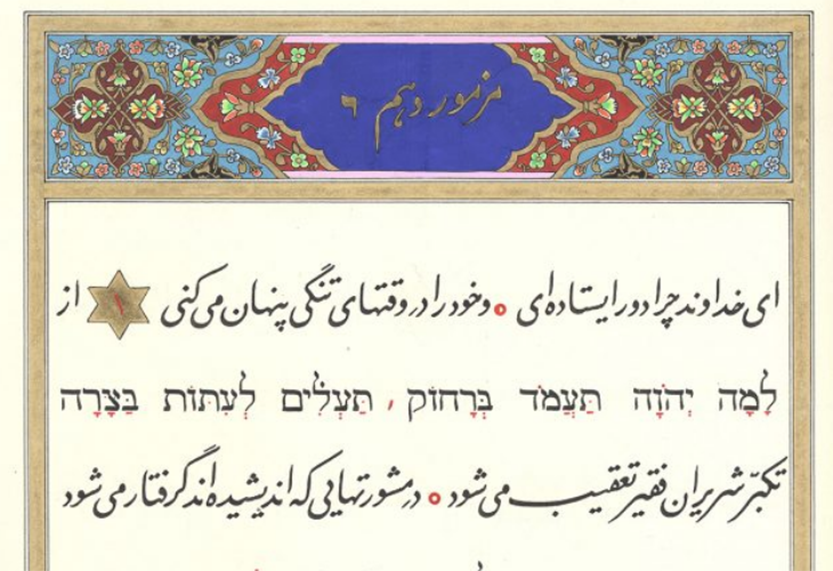 مزمور دهم ٦
ای خداوند چرا دور ایستاده‌ای ه وخود را در وقتهای تنگی پنهان می‌کنی ۱ از
לָמָה יְהֹוָה תַּעֲמֹד בְּרָחוֹק, תַּעְלִים לְעִתּוֹת בַּצָּרָה
تکبّر شریران فقیر تعقیب می‌شود ه در مشورتهایی که اندیشیده‌اند گرفتار می‌شود